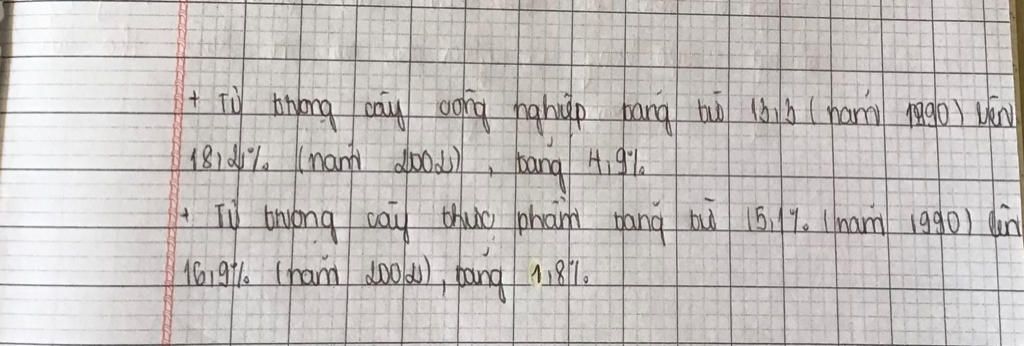 + Tỉ trọng cây công nghiệp tăng từ 13,3 (năm 1990) lên
18,2% (năm 2002), tăng 4,9%
+ Tỉ trọng cây thực phẩm tăng từ 15,1% (năm 1990) lên
16,9% (năm 2002), tăng 1,8%